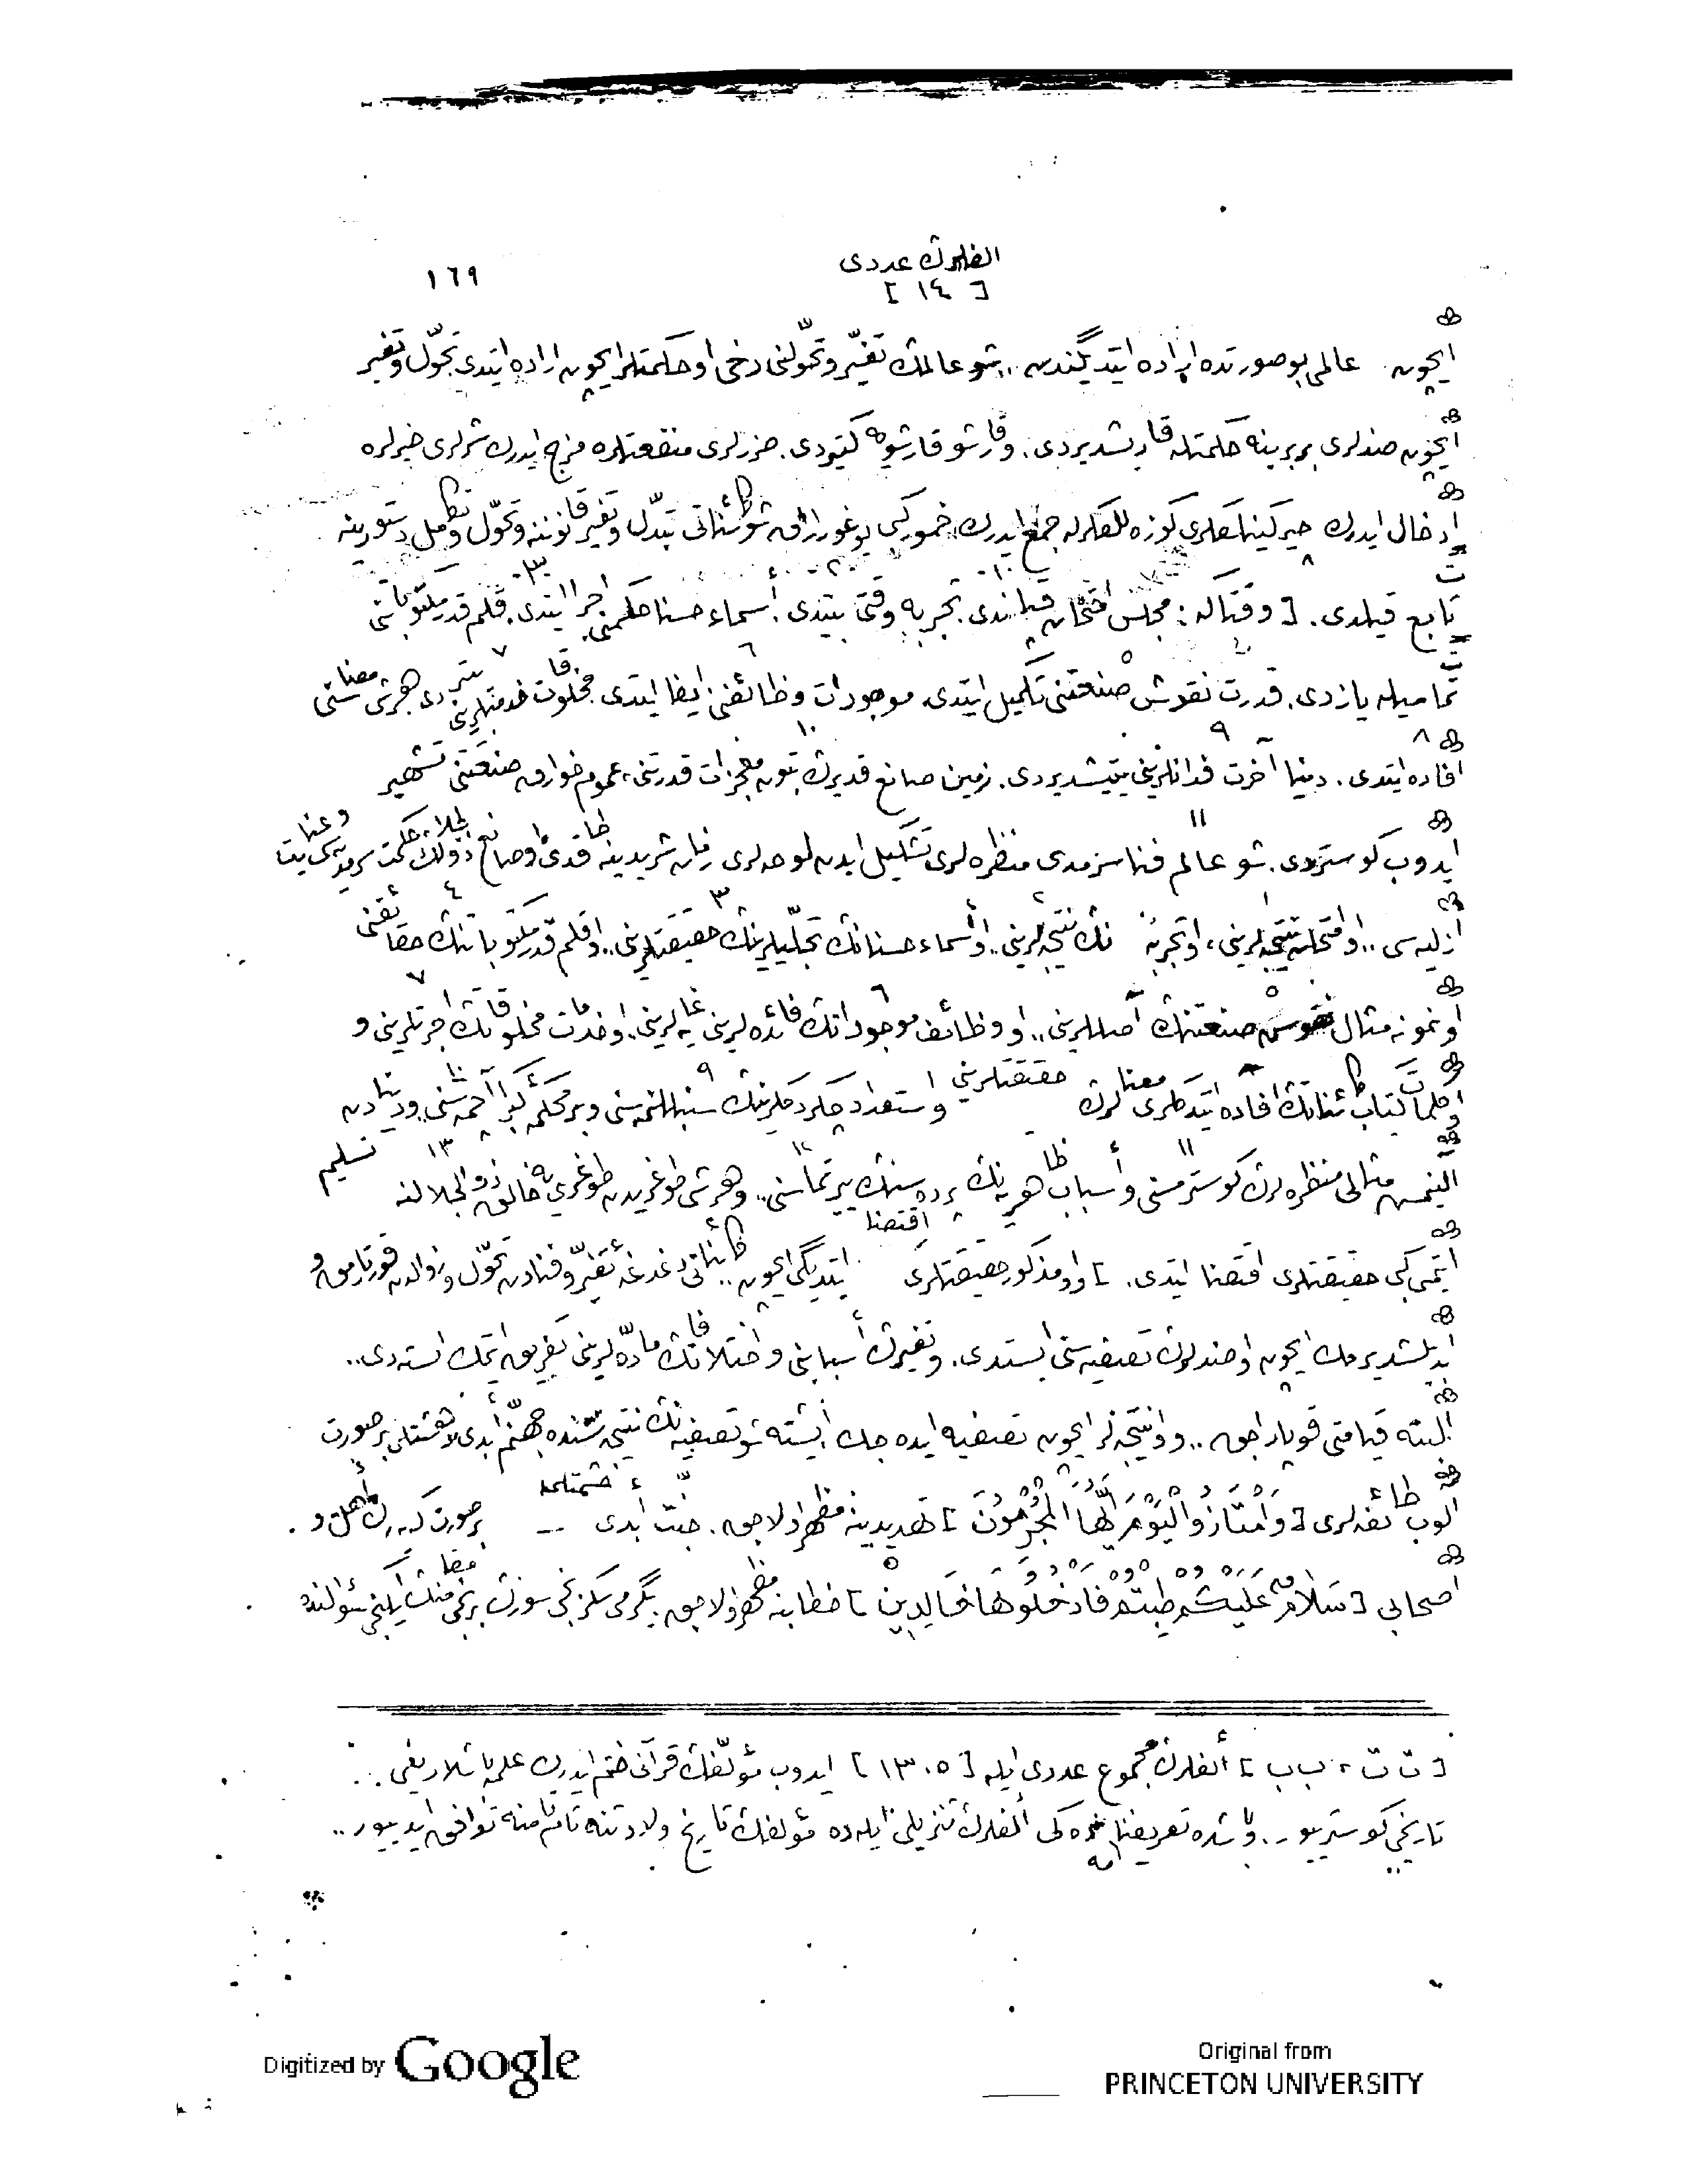 الفلرڭ عددی
[ ١٤ ]
١٦٩
ایچون عالمی بو صورتده اراده ایتدیگندن .. شو عالمڭ تغیّر وتحوّلنی دخی او حكمتلر ایچون اراده ایتدی. تحوّل وتغیر
ایچون ضدلری بربرینه حكمتله قاریشدیردی. وقارشو قارشویه كتیردی. ضررلری منفعتلره مزج ایدرك شرلری خیرلره
ادخال ایدرك چیركینلكلری گوزللكلرله جمع ایدرك، خمور كبی یوغورارق شو كائناتی تبدّل وتغیر قانوننه وتحوّل وتكامل دستورینه
تابع قیلدی. [ وقتاكه : مجلس امتحان قپاندی. تجربه وقتی بیتدی. أسماء حسنا حكمنی اجرا ایتدی. قلم قدر مكتوباتنی
تمامیله یازدی. قدرت نقوش صنعتنی تكمیل ایتدی. موجودات وظائفنی ایفا ایتدی. مخلوقات خدمتلرینی بتیردی. هر شی معناسنی
افاده ایتدی. دنیا آخرت فدانلرینی یتیشدیردی. زمین صانع قدیرڭ بتون معجزات قدرتنی، عموم خوارق صنعتنی تشهیر
ایدوب گوستردی. شو عالم فنا سرمدی منظره لری تشكیل ایدن لوحه لری زمان شریدینه طاقدی. او صانع ذوالجلالڭ حكمت سرمدیه سی وعنایت
ازلیه سی .. او امتحان نتیجه لرینی، او تجربه نڭ نتیجه لرینی.. او أسماء حسنانڭ تجلّیلرینڭ حقیقتلرینی.. او قلم قدر مكتوباتنڭ حقائقنی
او نمونه مثال نقوش صنعتنڭ اصللرینی.. او وظائف موجوداتڭ فائده لرینی غایه لرینی.. او خدمات مخلوقاتڭ اجرتلرینی و
او كلمات كتاب كائناتڭ افاده ایتدكلری معنالرڭ حقیقتلرینی واستعداد چكردكلرینڭ سنبللنمه سنی وبر محكمۀ كبرا آچمه سنی.. ودنیادن
آلینمش مثالی منظره لرڭ گوسترمسنی وأسباب ظاهریه نڭ پرده سنڭ ییرتماسنی.. وهر شی طوغریدن طوغری یه خالق ذوالجلالنه تسلیم
ایتمی كبی حقیقتلری اقتضا ایتدی. ] واو مذكور حقیقتلری اقتضا ایتدیگی ایچون .. كائناتی دغدغۀ تغیّر وفنادن تحوّل وزوالدن قورتارمق و
ابدیلشدیرمك ایچون او ضدلرڭ تصفیه سنی ایستدی. وتغیرڭ أسبابنی واختلافاتڭ مادّه لرینی تفریق ایتمك ایسته دی..
البته قیامتی قوپاراجق .. واو نتیجه لر ایچون تصفیه ایده جك. ایشته شو تصفیه نڭ نتیجه سنده جهنّم أبدی دهشتلی بر صورت
آلوب طائفه لری [ وَامْتَازُوا الْيَوْمَ أَيُّهَا الْمُجْرِمُونَ ] تهدیدینه مظهر اولاجق. جنّت أبدی حشمتلی بر صورت گیه رك أهل و
اصحابی [ سَلَامٌ عَلَيْكُمْ طِبْتُمْ فَادْخُلُوهَا خَالِدِينَ ] خطابنه مظهر اولاجق. یگرمی سكزنجی سوزڭ برنجی مقامنڭ ایكنجی سؤالنده
[ ت ت ، ب ب ] ألفلرڭ مجموع عددی ایله [ ١٣٠٥ ] ایدوب مؤلّفڭ قرآنی ختم ایدرك علمه باشلادیغی ..
تاریخی گوستریور.. وباشده تعریفنامه ده كی ألفلرڭ تنزیلی ایله ده مؤلفڭ تاریخ ولادتنه تام تامنه توافق ایدییور..
Digitized by Google
Original from
PRINCETON UNIVERSITY